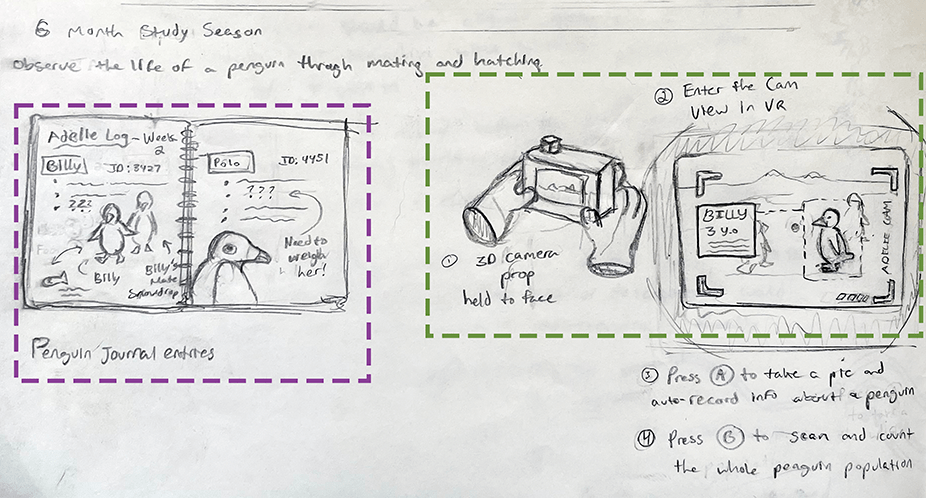 6 Month Study Season
Observe the life of a penguin through mating and hatching
Adelie Log - Week
2
Billy
ID: 3427
???
Billy
Billy's
Mate
Snowdrop
Polo
ID: 4451
???
Need to
weigh
her!
Penguin Journal entries
① 3D camera
prop
held to face
② Enter the Cam
view in VR
BILLY
3 y.o.
ADELIE CAM
③ Press Ⓐ to take a pic and
auto-record info about a penguin
④ Press Ⓑ to scan and count
the whole penguin population